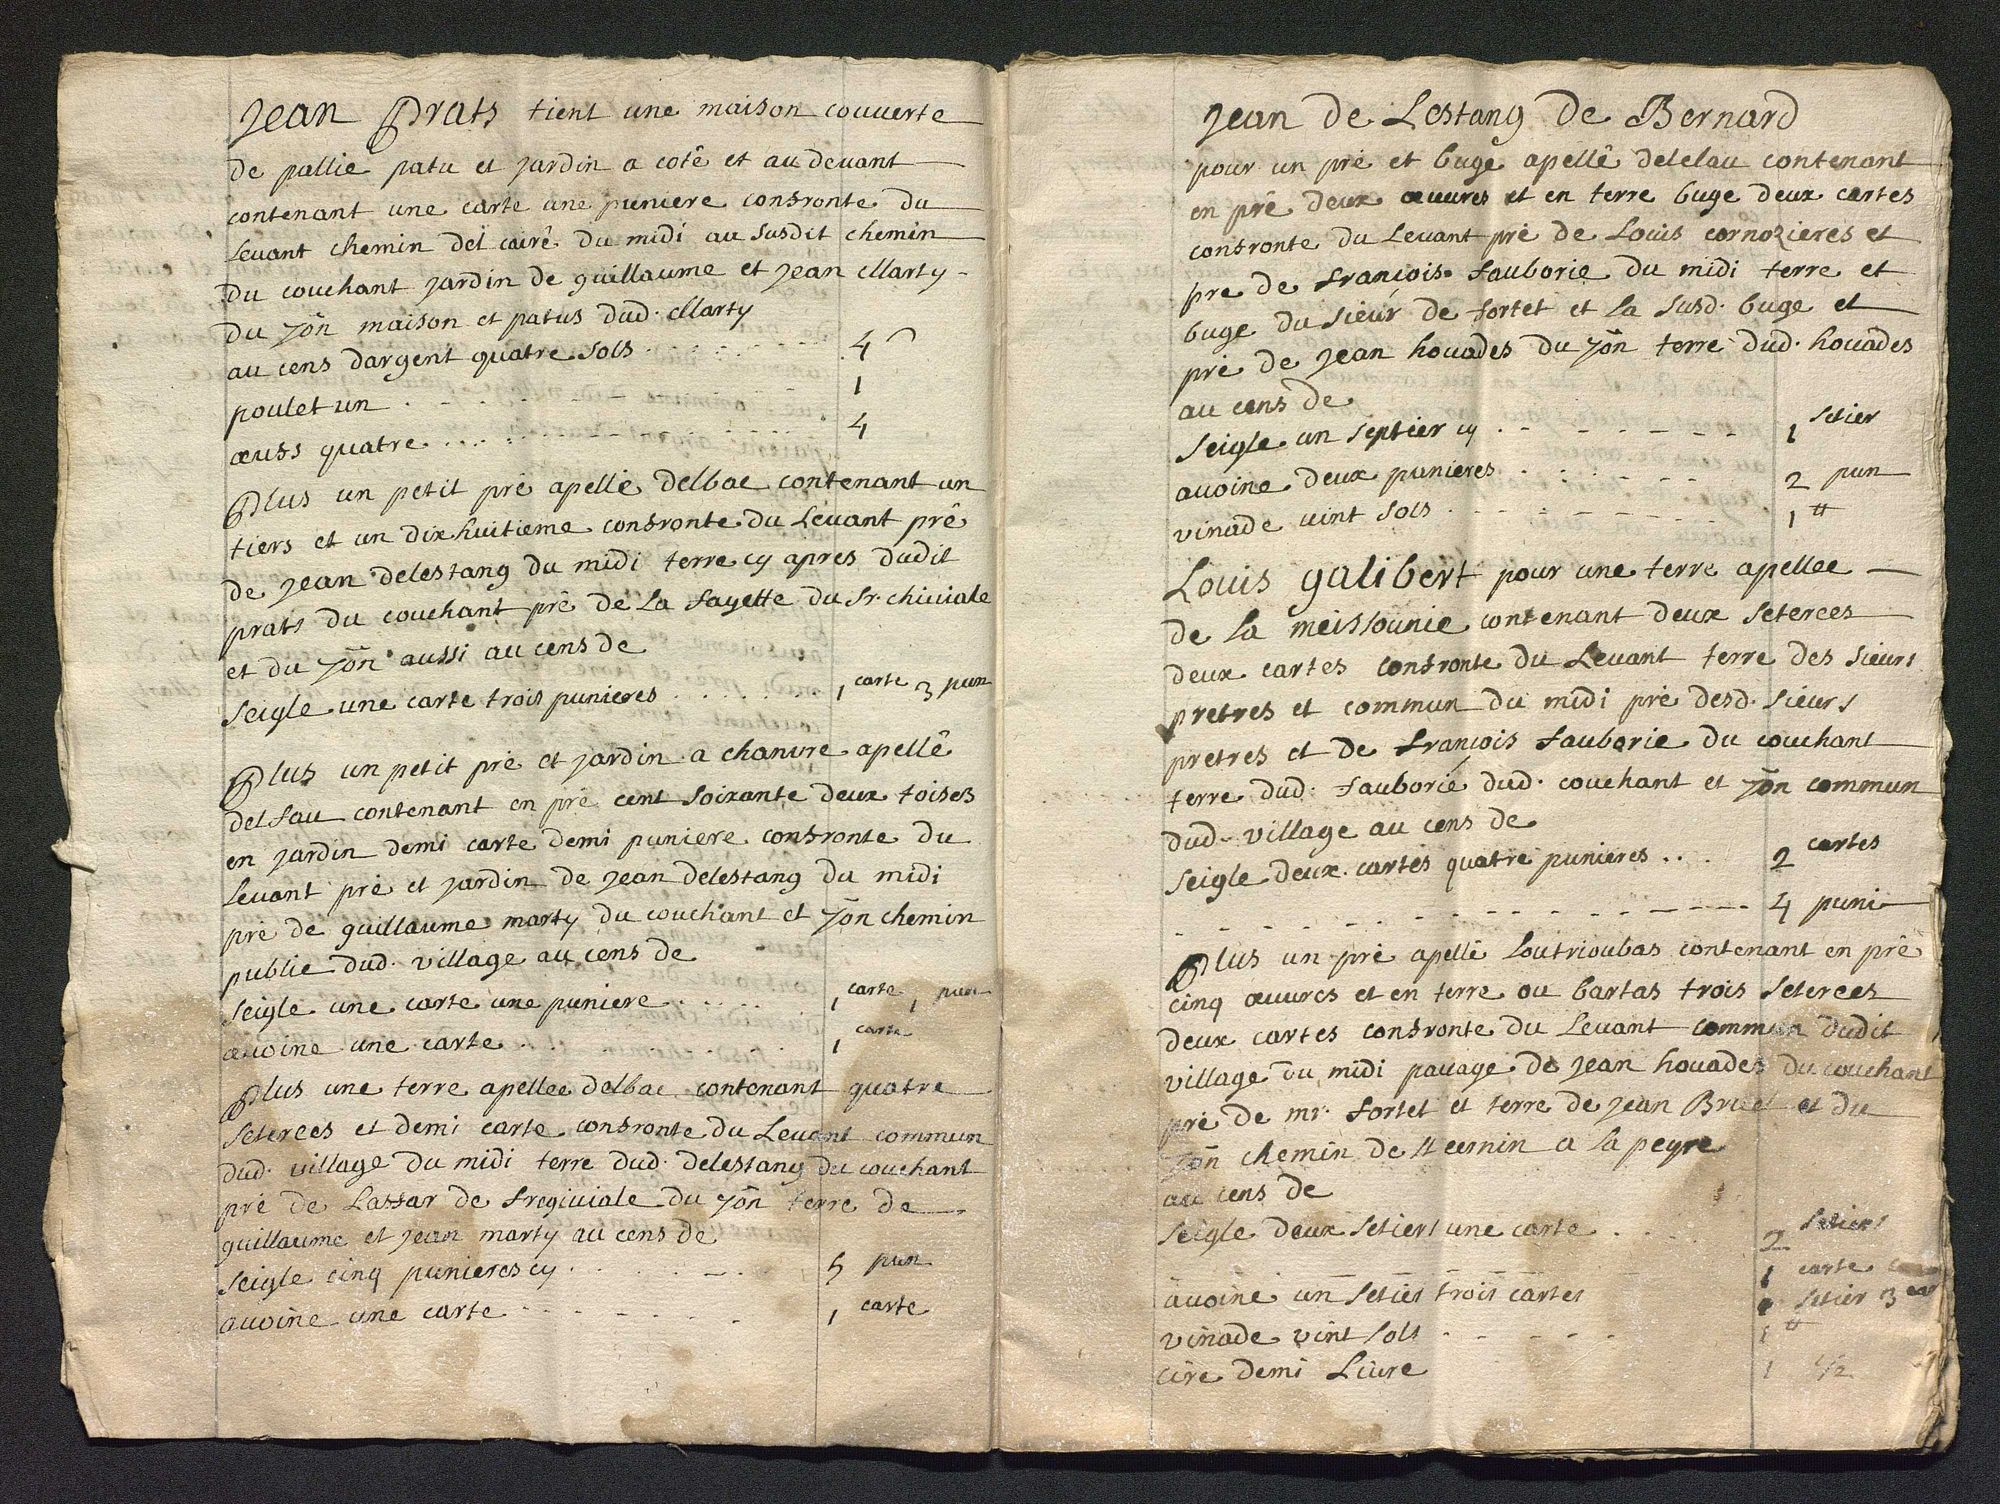 Jean Prats tient une maison couuerte
de pallie patu et jardin a coté et au deuant
contenant une carte une puniere confronte du
Leuant chemin del cairé du midi au susdit chemin
du couchant jardin de guillaume et jean Marty
du 7on maison et patus dud. Marty
au cens dargent quatre sols 4 s
poulet un 1
œufs quatre 4
Plus un petit pré apellé delbac contenant un
tiers et un dixhuitieme confronte du Leuant pré
de jean delestang du midi terre cy apres dudit
prats du couchant pré de la fayette du Sr. chiuiale
et du 7on aussi au cens de
seigle une carte trois punieres 1 carte 3 pun
Plus un petit pré et jardin a chanure apellé
del fau contenant en pré cent soixante deux toises
en jardin demi carte demi puniere confronte du
Leuant pré et jardin de jean delestang du midi
pré de guillaume marty du couchant et 7on chemin
public dud. village au cens de
seigle une carte une puniere 1 carte 1 pun
auoine une carte 1 carte
Plus une terre apellee delbac contenant quatre
seterees et demi carte confronte du Leuant commun
dud. village du midi terre dud. delestang du couchant
pré de Lassar de fregiuiale du 7on terre de
guillaume et jean marty au cens de
seigle cinq punieres cy 5 pun
auoine une carte 1 carte
Jean de Lestang de Bernard
pour un pré et bugé apellé delelau contenant
en pré deux œuures et en terre buge deux cartes
confronte du Leuant pré de Louis cornozieres et
pre de françois fauborie du midi terre et
buge du sieur de fortet et la susd. buge et
pré de jean houades du 7on terre dud. houades
au cens de
seigle un septier cy 1 setier
auoine deux punieres 2 pun
vinade vint sols 1 ₶
Louis galibert pour une terre apellee
de la meissounie contenant deux seterees
deux cartes confronte du Leuant terre des sieurs
pretres et commun du midi pré desd. sieurs
pretres et de françois fauborie du couchant
terre dud. fauborie dud. couchant et 7on commun
dud. village au cens de
seigle deux cartes quatre punieres 2 cartes
4 puni
Plus un pré apellé Loutrioubas contenant en pré
cinq œuures et en terre ou bartas trois seterees
deux cartes confronte du Leuant commun dudit
village du midi pauage de jean houades du couchant
pré de mr. fortet et terre de jean Bruel et du
7on chemin de a la peyre
au cens de
seigle deux setiers une carte 2 setiers
1 carte
auoine un setier trois cartes setier 3 car
vinade vint sols 1 ₶
cire demi Liure 1 1/2